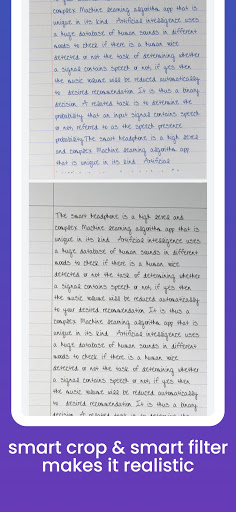 complex Machine learning algorithm app that is
unique in its kind. Artificial intelligence uses
a huge database of human sounds in different
moods to check if there is a human voice
detected or not the task of determining whether
a signal contains speech or not, if yes then
the music volume will be reduced automatically
to desired recommendation. It is thus a binary
decision. A related task is to determine the
probability that an input signal contains speech
or not, referred to as the speech presence
probability. The smart headphone is a high level
and complex Machine learning algorithm app
that is unique in its kind. Artificial
The smart headphone is a high level and
complex Machine learning algorithm app that is
unique in its kind. Artificial intelligence uses
a huge database of human sounds in different
moods to check if there is a human voice
detected or not the task of determining whether
a signal contains speech or not, if yes then
the music volume will be reduced automatically
to your desired recommendation It is thus a
complex Machine learning algorithm app that is
unique in its kind. Artificial intelligence uses
a huge database of human sounds in different
moods to check if there is a human voice
detected or not the task of determining whether
a signal contains speech or not, if yes then
the music volume will be reduced automatically
to desired recommendation. It is thus a binary
decision. A related task is to determine the
smart crop & smart filter
makes it realistic